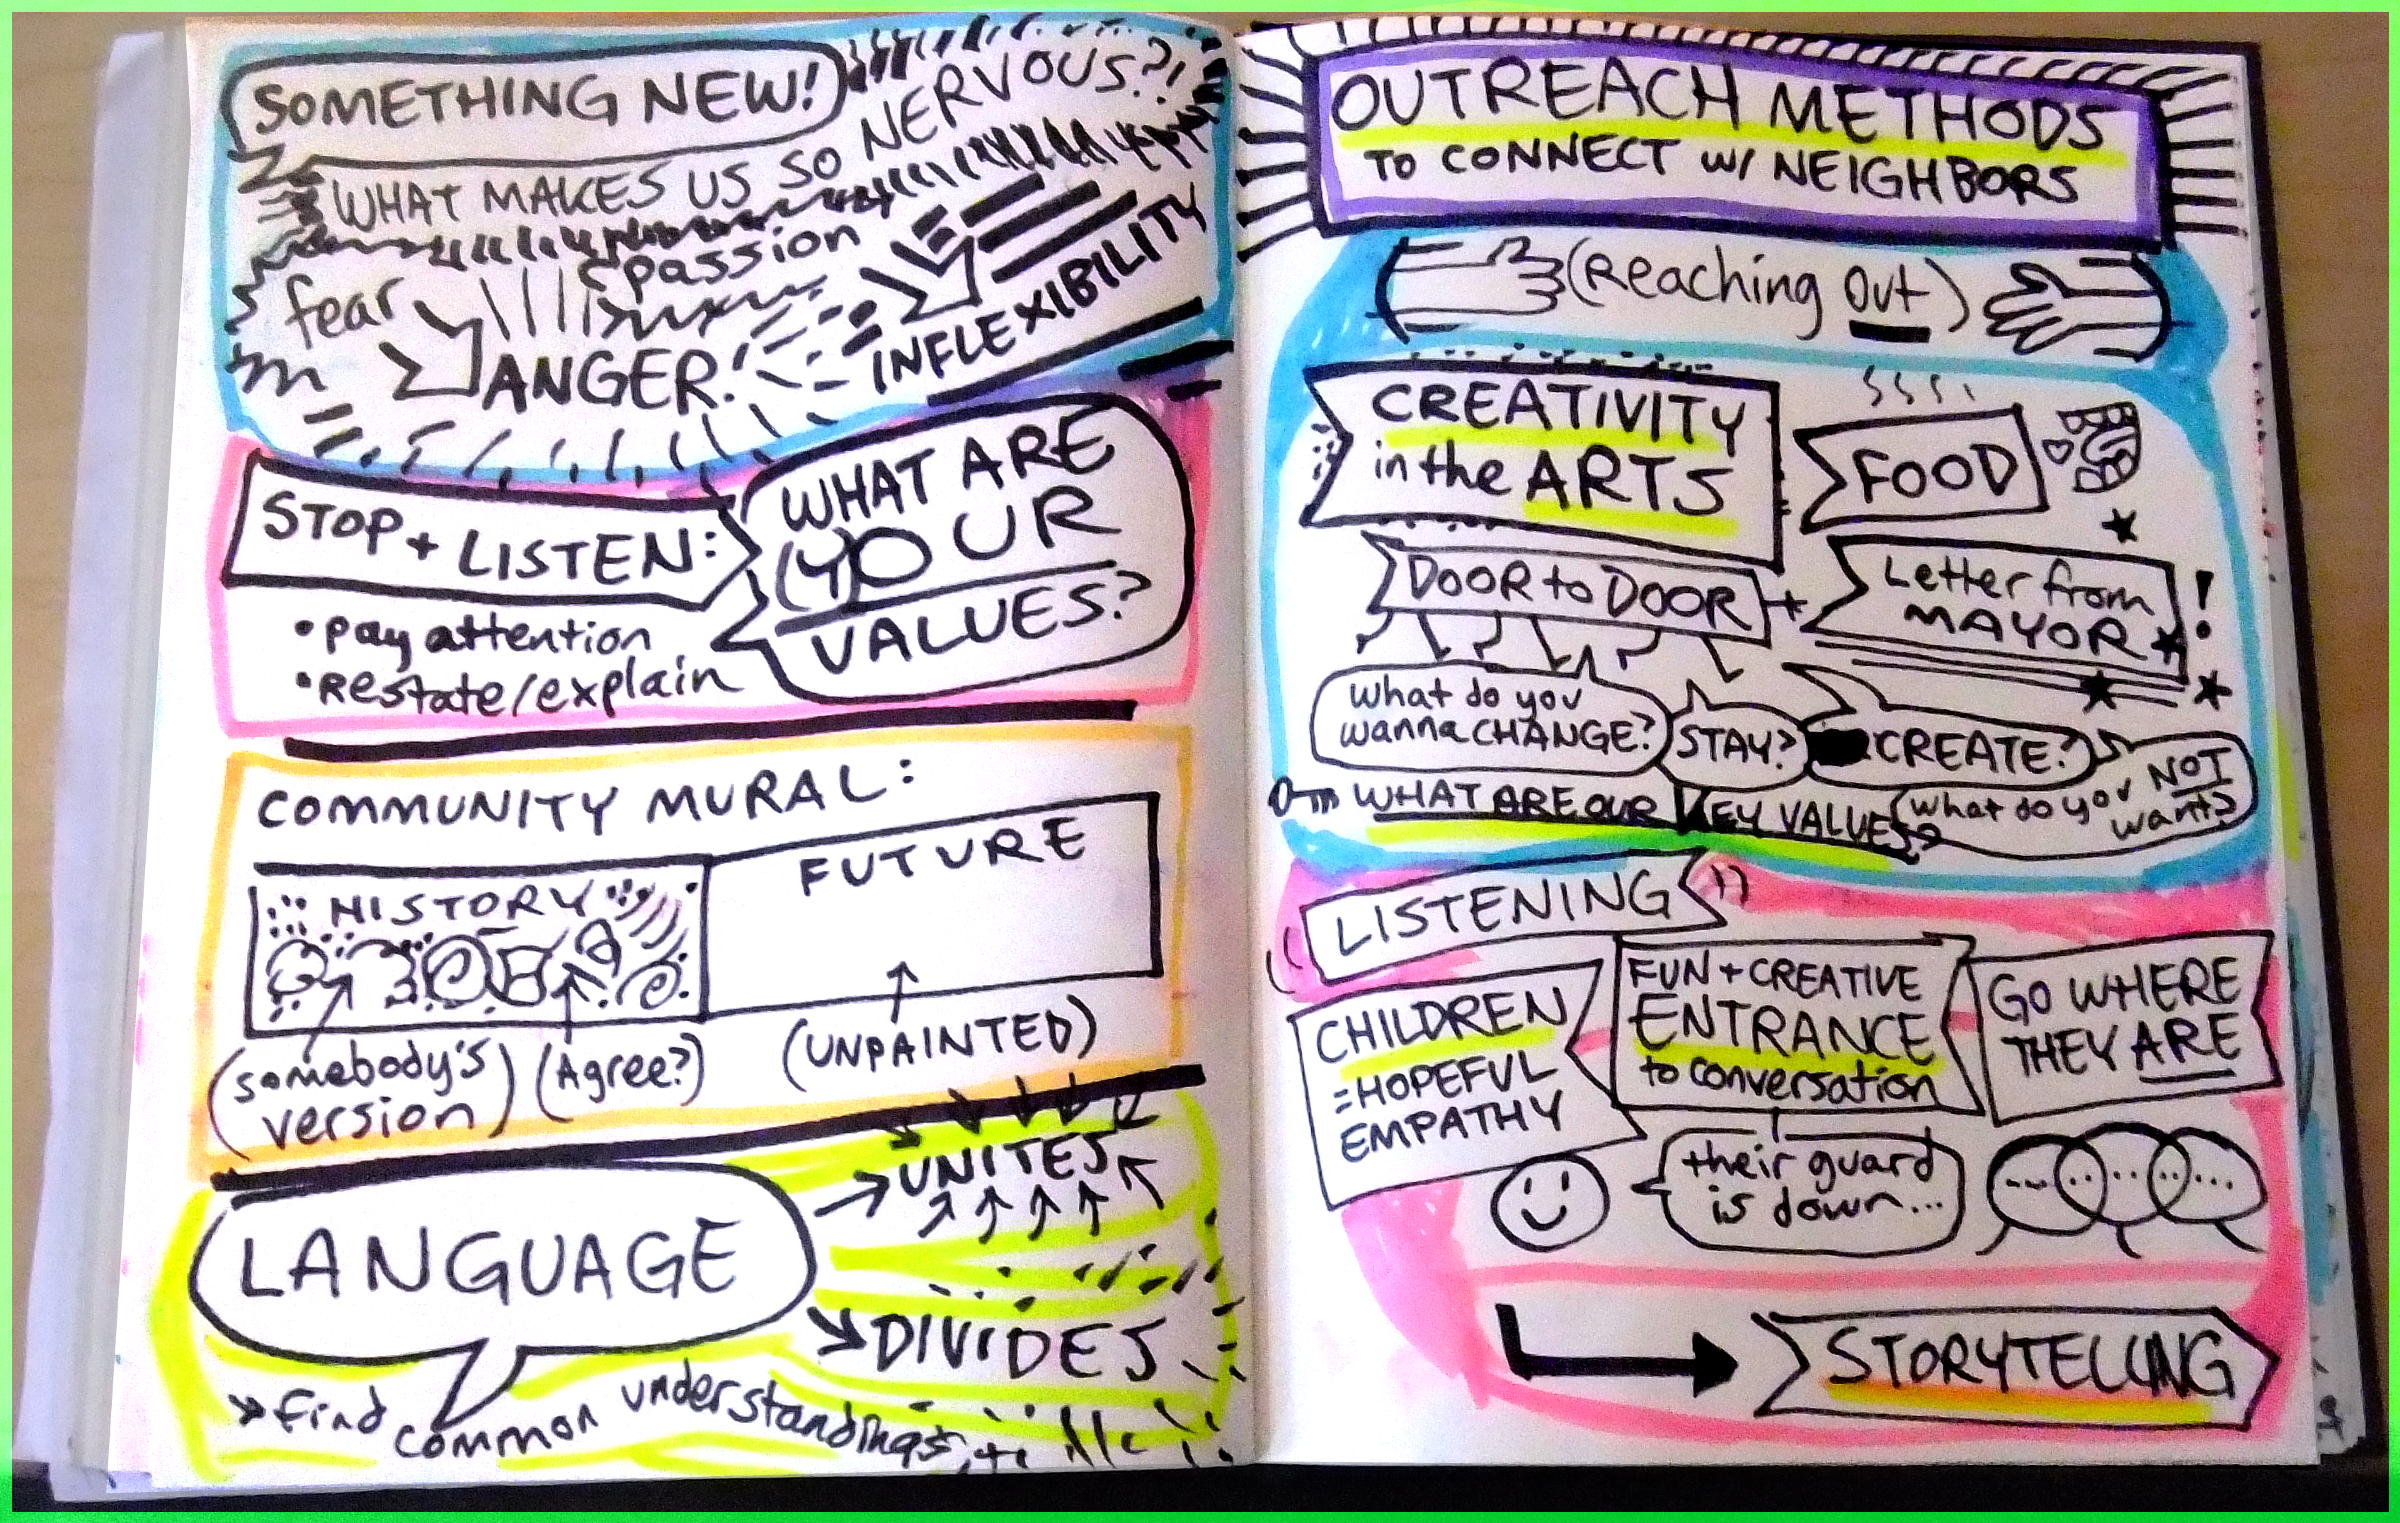 SOMETHING NEW!
WHAT MAKES US SO NERVOUS?!
fear
passion
ANGER!
INFLEXIBILITY
STOP + LISTEN:
• pay attention
• restate/explain
WHAT ARE
(Y)OUR
VALUES?
COMMUNITY MURAL:
HISTORY
FUTURE
(somebody's
version)
(Agree?)
(UNPAINTED)
LANGUAGE
UNITES
DIVIDES
find common understandings
OUTREACH METHODS
TO CONNECT W/ NEIGHBORS
(Reaching Out)
CREATIVITY
in the ARTS
FOOD
DOOR to DOOR
+
Letter from
MAYOR
!
What do you
wanna CHANGE?
STAY?
CREATE?
What do you NOT
want?
WHAT ARE OUR KEY VALUES?
LISTENING
CHILDREN
=HOPEFUL
EMPATHY
FUN + CREATIVE
ENTRANCE
to conversation
GO WHERE
THEY ARE
their guard
is down...
STORYTELLING